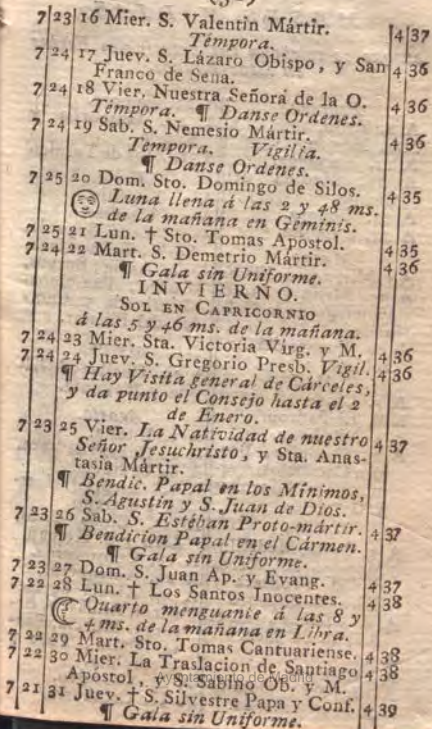 7 23 16 Mier. S. Valentin Mártir. 4 37
Témpora.
7 24 17 Juev. S. Lázaro Obispo, y San 4 36
Franco de Sena.
7 24 18 Vier. Nuestra Señora de la O. 4 36
Témpora. ¶ Danse Ordenes.
7 24 19 Sab. S. Nemesio Mártir. 4 36
Témpora. Vigilia.
¶ Danse Ordenes.
7 25 20 Dom. Sto. Domingo de Silos. 4 35
Luna llena á las 2 y 48 ms.
de la mañana en Geminis.
7 25 21 Lun. † Sto. Tomas Apostol. 4 35
7 24 22 Mart. S. Demetrio Mártir. 4 36
¶ Gala sin Uniforme.
INVIERNO.
SOL EN CAPRICORNIO
á las 5 y 46 ms. de la mañana.
7 24 23 Mier. Sta. Victoria Virg. y M. 4 36
7 24 24 Juev. S. Gregorio Presb. Vigil. 4 36
¶ Hay Visita general de Cárceles,
y da punto el Consejo hasta el 2
de Enero.
7 23 25 Vier. La Natividad de nuestro 4 37
Señor Jesuchristo, y Sta. Anas-
tasia Mártir.
¶ Bendic. Papal en los Mínimos,
S. Agustin y S. Juan de Dios.
7 23 26 Sab. S. Estéban Proto-mártir. 4 37
¶ Bendicion Papal en el Cármen.
¶ Gala sin Uniforme.
7 23 27 Dom. S. Juan Ap. y Evang. 4 37
7 22 28 Lun. † Los Santos Inocentes. 4 38
Quarto menguante á las 8 y
4 ms. de la mañana en Libra.
7 22 29 Mart. Sto. Tomas Cantuariense. 4 38
7 22 30 Mier. La Traslacion de Santiago 4 38
Apóstol, y S. Sabino Ob. y M.
Ayuntamiento de Madrid
7 21 31 Juev. † S. Silvestre Papa y Conf. 4 39
¶ Gala sin Uniforme.